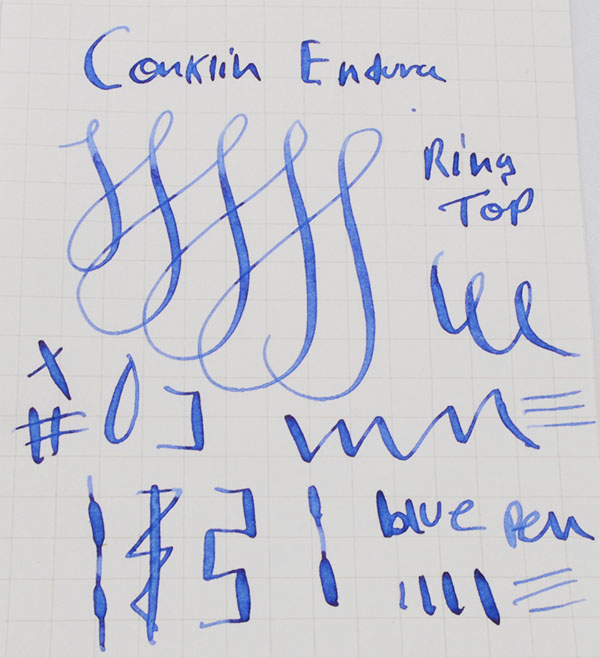 Conklin Endura
Ring
Top
x
#
blue pen